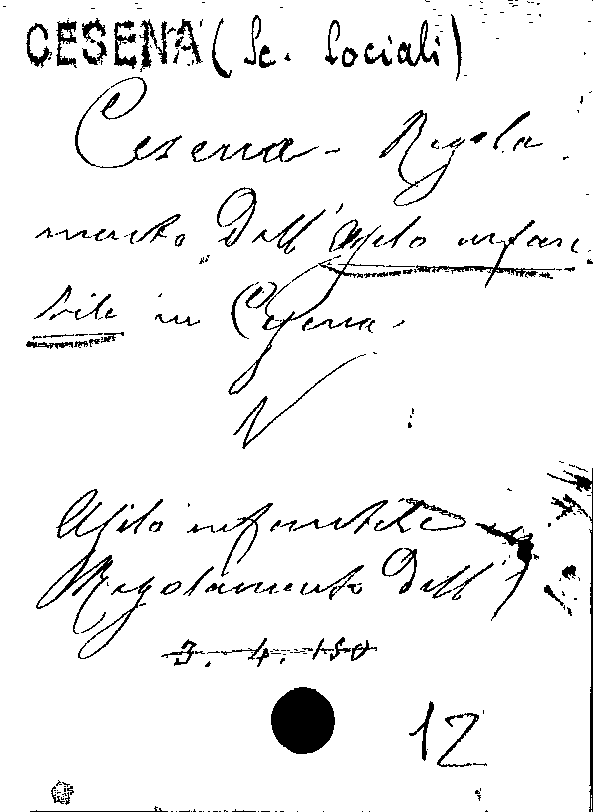 CESENA (Sc. Sociali)
Cesena - Regola
mento Dell' Asilo infan
tile in Cesena.
V
Asilo infantile in
Regolamento dell'
3. 4. 150
12